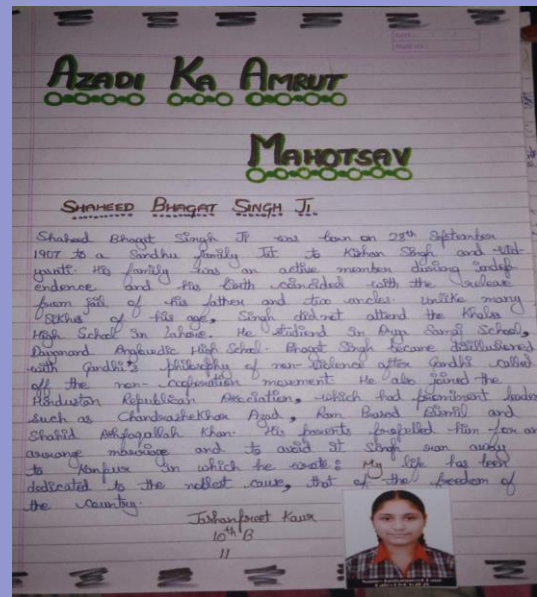 AZADI KA AMRUT
MAHOTSAV
SHAHEED BHAGAT SINGH JI
Shaheed Bhagat Singh Ji was born on 28th September
1907 to a Sandhu family Jat to Kishan Singh and Vid-
yavati. His family was an active member during indep
endence and his birth coincided with the release
from jail of his father and two uncles. Unlike many
Sikhs of his age, Singh did not attend the Khalsa
High School in Lahore. He studied in Arya Samaj School,
Dayanand Anglovedic High School. Bhagat Singh became disillusioned
with Gandhi's philosophy of non-violence after Gandhi called
off the non-cooperation movement. He also joined the
Hindustan Republican Association, which had prominent leaders
such as Chandrashekhar Azad, Ram Prasad Bismil and
Shahid Ashfaqallah Khan. His parents propelled him for an
arrange marriage and to avoid it Singh ran away
to Kanpur in which he wrote: My life has been
dedicated to the noblest cause, that of the freedom of
the country.
Jashanpreet Kaur
10th B
11